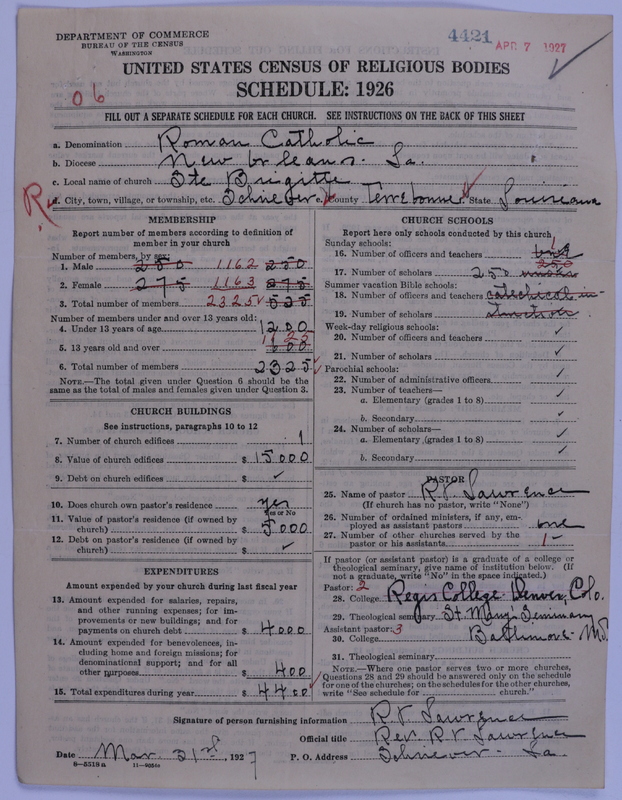 DEPARTMENT OF COMMERCE
BUREAU OF THE CENSUS
WASHINGTON
4421
APR 7 1927
UNITED STATES CENSUS OF RELIGIOUS BODIES
SCHEDULE: 1926
06
FILL OUT A SEPARATE SCHEDULE FOR EACH CHURCH. SEE INSTRUCTIONS ON THE BACK OF THIS SHEET
a. Denomination Roman Catholic
b. Diocese New Orleans. La.
c. Local name of church Ste Brigitte
R
d. City, town, village, or township, etc. Schriever e. County Terrebonne State Louisiana
MEMBERSHIP
Report number of members according to definition of
member in your church
Number of members, by sex:
1. Male 250 1162 250
2. Female 275 1163 275
3. Total number of members 2325 525
Number of members under and over 13 years old:
4. Under 13 years of age 1200
5. 13 years old and over 1125
6. Total number of members 2325
NOTE.—The total given under Question 6 should be
same as the total of males and females given under Question 3.
CHURCH BUILDINGS
See instructions, paragraphs 10 to 12
7. Number of church edifices 1
8. Value of church edifices $ 15000
9. Debt on church edifices $ ✓
10. Does church own pastor's residence yes
Yes or No
11. Value of pastor's residence (if owned by
church) $ 5000
12. Debt on pastor's residence (if owned by
church) $ ✓
EXPENDITURES
Amount expended by your church during last fiscal year
13. Amount expended for salaries, repairs,
and other running expenses; for im-
provements or new buildings; and for
payments on church debt $ 4000
14. Amount expended for benevolences, in-
cluding home and foreign missions; for
denominational support; and for all
other purposes $ 400
15. Total expenditures during year $ 4400
CHURCH SCHOOLS
Report here only schools conducted by this church
Sunday schools:
16. Number of officers and teachers
17. Number of scholars 250
Summer vacation Bible schools:
18. Number of officers and teachers catechical in-
19. Number of scholars struction
Week-day religious schools:
20. Number of officers and teachers ✓
21. Number of scholars ✓
Parochial schools:
22. Number of administrative officers ✓
23. Number of teachers—
a. Elementary (grades 1 to 8) ✓
b. Secondary ✓
24. Number of scholars—
a. Elementary (grades 1 to 8) ✓
b. Secondary ✓
PASTOR
25. Name of pastor R.V. Lawrence
(If church has no pastor, write "None")
26. Number of ordained ministers, if any, em-
ployed as assistant pastors one
27. Number of other churches served by the
pastor or his assistants 1
If pastor (or assistant pastor) is a graduate of a college or
theological seminary, give name of institution below. (If
not a graduate, write "No" in the space indicated.)
Pastor: 2
28. College Regis College Denver, Colo.
29. Theological seminary St Mary's Seminary
Assistant pastor: 3
30. College Baltimore Md.
31. Theological seminary
NOTE.—Where one pastor serves two or more churches,
Questions 28 and 29 should be answered only on the schedule
for one of the churches; on the schedules for the other churches,
write "See schedule for church."
Signature of person furnishing information R.V. Lawrence
Official title Rev. R.V. Lawrence
Date Mar. 31st, 1927 P. O. Address Schriever La
8—5518a 11—9064